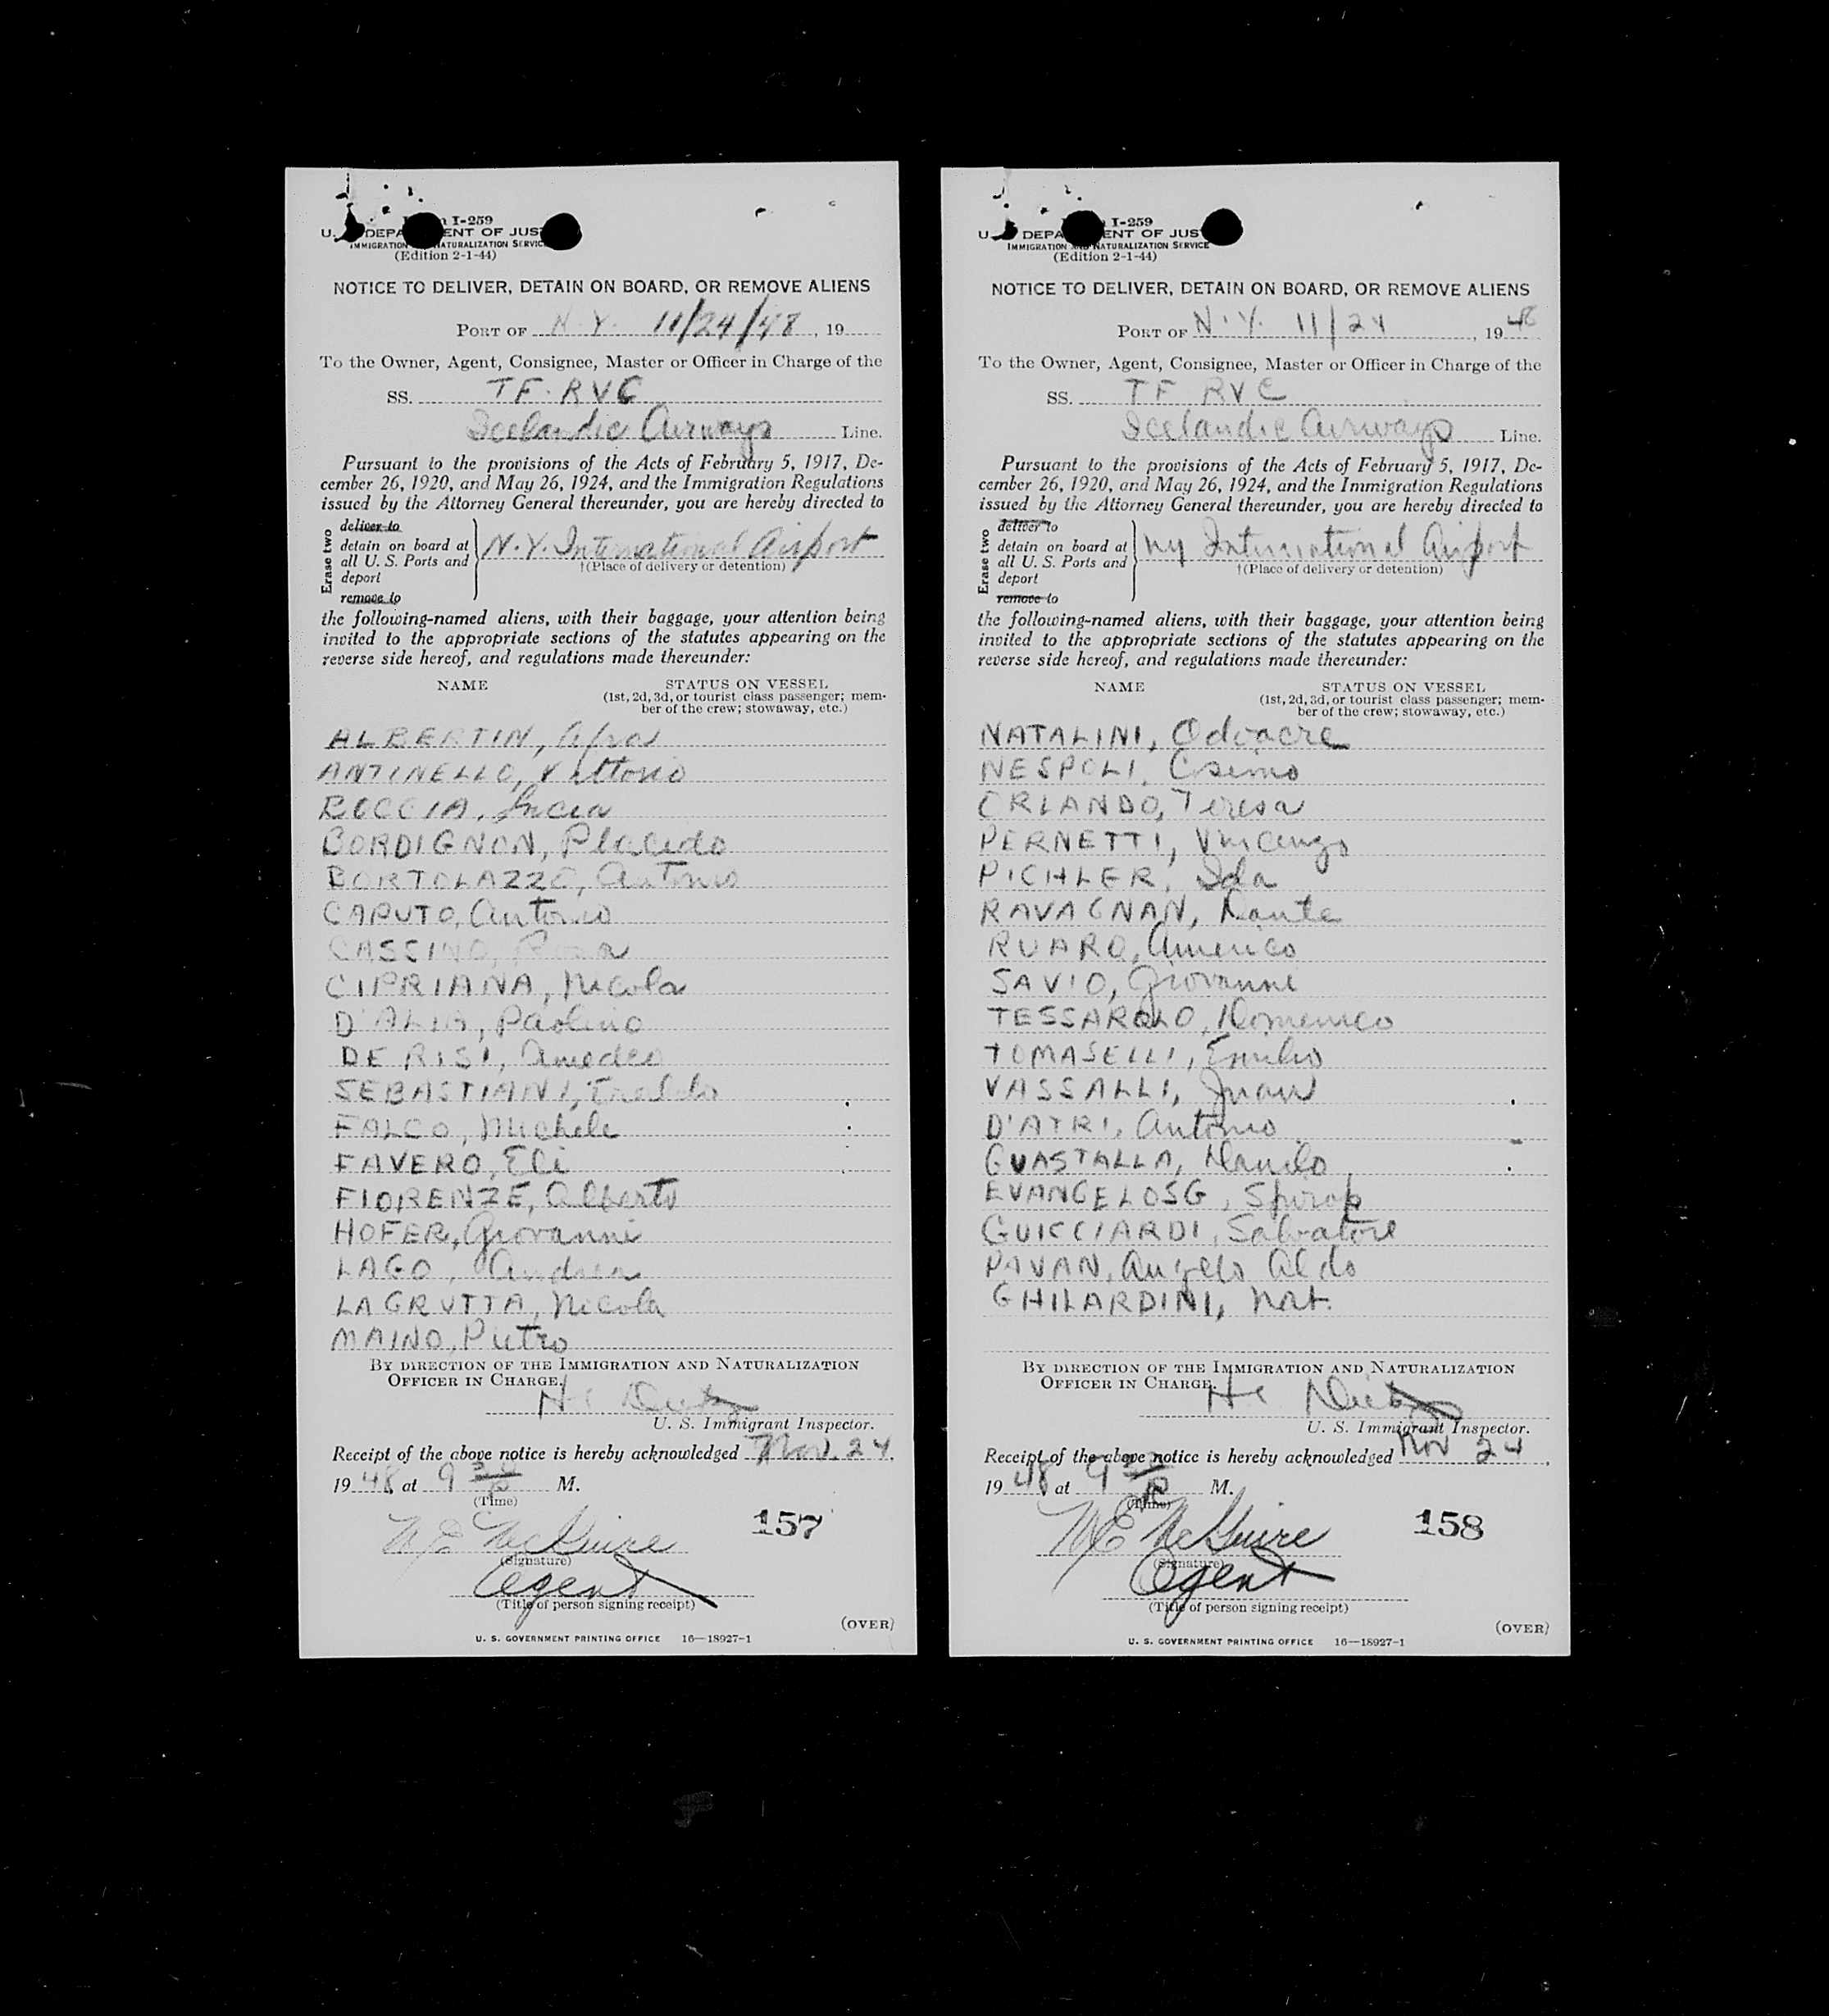 Form I-259
U. S. DEPARTMENT OF JUSTICE
IMMIGRATION AND NATURALIZATION SERVICE
(Edition 2-1-44)
NOTICE TO DELIVER, DETAIN ON BOARD, OR REMOVE ALIENS
PORT OF N. Y. 11/24/48, 19
To the Owner, Agent, Consignee, Master or Officer in Charge of the
SS. TF-RVC
Icelandic Airways Line.
Pursuant to the provisions of the Acts of February 5, 1917, De-
cember 26, 1920, and May 26, 1924, and the Immigration Regulations
issued by the Attorney General thereunder, you are hereby directed to
Erase two
deliver to
detain on board at
all U. S. Ports and
deport
remove to
N.Y. International Airport
†(Place of delivery or detention)
the following-named aliens, with their baggage, your attention being
invited to the appropriate sections of the statutes appearing on the
reverse side hereof, and regulations made thereunder:
NAME STATUS ON VESSEL
(1st, 2d, 3d, or tourist class passenger; mem-
ber of the crew; stowaway, etc.)
ALBERTIN, Afra
ANTINELLO, Vittorio
BOCCIA, Lucia
BORDIGNON, Placido
BORTOLAZZO, Antonio
CAPUTO, Antonio
CASSINO, Rosa
CIPRIANA, Nicola
D'ALIA, Paolino
DE RISI, Amedeo
SEBASTIANI,
FALCO, Michele
FAVERO, Eli
FIORENZE, Alberto
HOFER, Giovanni
LAGO, Andrea
LAGRUTTA, Nicola
MAINO, Pietro
BY DIRECTION OF THE IMMIGRATION AND NATURALIZATION
OFFICER IN CHARGE.
U. S. Immigrant Inspector.
Receipt of the above notice is hereby acknowledged Nov. 24,
19 48, at 9 30 P M.
(Time)
157
McGuire
(Signature)
Agent
(Title of person signing receipt)
(OVER)
U. S. GOVERNMENT PRINTING OFFICE 16—18927-1
Form I-259
U. S. DEPARTMENT OF JUSTICE
IMMIGRATION AND NATURALIZATION SERVICE
(Edition 2-1-44)
NOTICE TO DELIVER, DETAIN ON BOARD, OR REMOVE ALIENS
PORT OF N. Y. 11/24, 1948
To the Owner, Agent, Consignee, Master or Officer in Charge of the
SS. TF RVC
Icelandic Airways Line.
Pursuant to the provisions of the Acts of February 5, 1917, De-
cember 26, 1920, and May 26, 1924, and the Immigration Regulations
issued by the Attorney General thereunder, you are hereby directed to
Erase two
deliver to
detain on board at
all U. S. Ports and
deport
remove to
NY International Airport
†(Place of delivery or detention)
the following-named aliens, with their baggage, your attention being
invited to the appropriate sections of the statutes appearing on the
reverse side hereof, and regulations made thereunder:
NAME STATUS ON VESSEL
(1st, 2d, 3d, or tourist class passenger; mem-
ber of the crew; stowaway, etc.)
NATALINI, Odoacre
NESPOLI, Cosimo
ORLANDO, Teresa
PERNETTI, Vincenzo
PICHLER, Ida
RAVAGNAN, Dante
RUARO, Americo
SAVIO, Giovanni
TESSAROLO, Domenico
TOMASELLI, Emilio
VASSALLI, Juan
D'ATRI, Antonio
GUASTALLA, Danilo
EVANGELOSG, Spirop
GUICCIARDI, Salvatore
PAVAN, Angelo Aldo
GHILARDINI, Nat.
BY DIRECTION OF THE IMMIGRATION AND NATURALIZATION
OFFICER IN CHARGE.
U. S. Immigrant Inspector.
Receipt of the above notice is hereby acknowledged Nov 24,
19 48, at 9 30 P M.
(Time)
158
McGuire
(Signature)
Agent
(Title of person signing receipt)
(OVER)
U. S. GOVERNMENT PRINTING OFFICE 16—18927-1